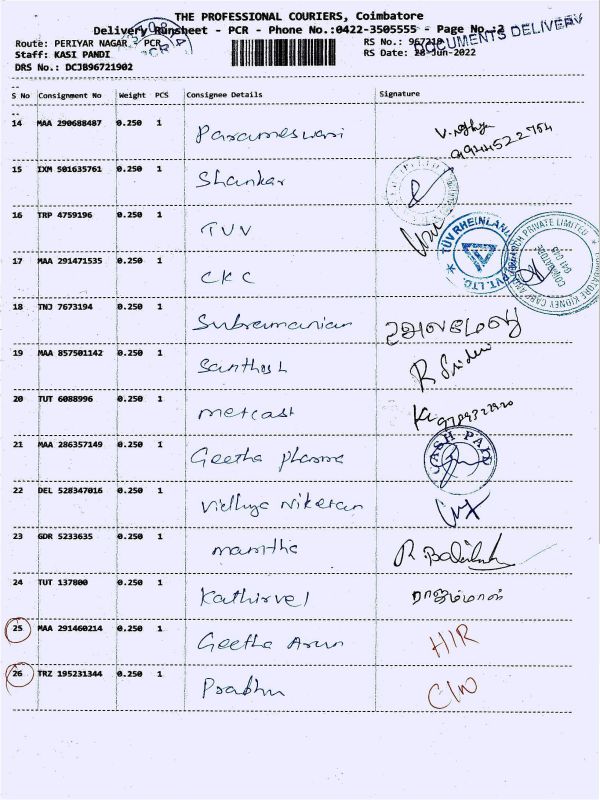 THE PROFESSIONAL COURIERS, Coimbatore
Delivery Runsheet - PCR - Phone No.:0422-3505555 - Page No.:2
DOCUMENTS DELIVERY
Route: PERIYAR NAGAR, PCR
RS No.: 967219
Staff: KASI PANDI
RS Date: 28-Jun-2022
DRS No.: DCJB96721902
S No Consignment No Weight PCS Consignee Details Signature
14 MAA 290688487 0.250 1 Parameswari
9944522754
15 IXM 501635761 0.250 1 Shankar
16 TRP 4759196 0.250 1 TUV
TÜV RHEINLAND PVT.LTD.
17 MAA 291471535 0.250 1 CKC
COIMBATORE KIDNEY PRIVATE LIMITED
COIMBATORE
641 045
18 TNJ 7673194 0.250 1 Subramanian
19 MAA 857501142 0.250 1 Santhosh R Sridevi
20 TUT 6088996 0.250 1 metcast
21 MAA 286357149 0.250 1 Geetha pharma CASH PAID
22 DEL 528347016 0.250 1 Vidhya Niketan
23 GDR 5233635 0.250 1 mamtha
24 TUT 137800 0.250 1 Kathirvel ராஜம்மாள்
25 MAA 291460214 0.250 1 Geetha Arun HIR
26 TRZ 195231344 0.250 1 Prabhu